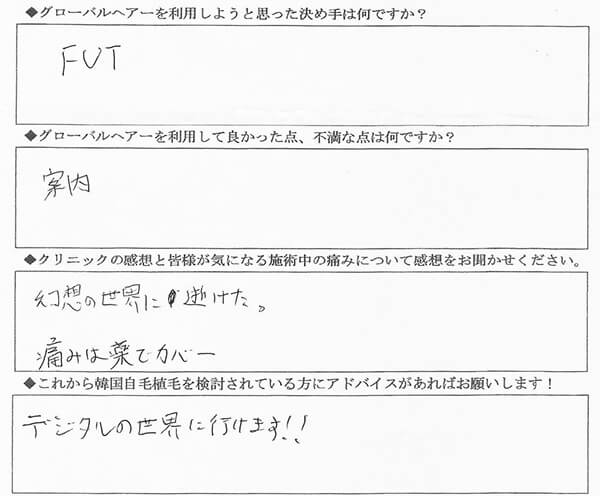 ◆グローバルヘアーを利用しようと思った決め手は何ですか？
FUT
◆グローバルヘアーを利用して良かった点、不満な点は何ですか？
案内
◆クリニックの感想と皆様が気になる施術中の痛みについて感想をお聞かせください。
幻想の世界に逝けた。
痛みは薬でカバー
◆これから韓国自毛植毛を検討されている方にアドバイスがあればお願いします！
デジタルの世界に行けます!!